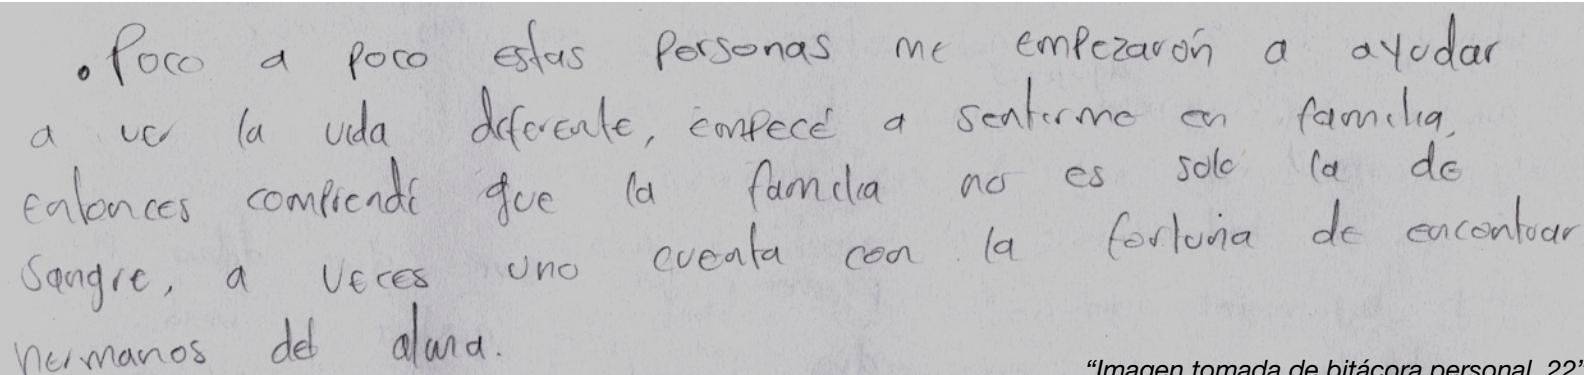 . Poco a poco estas personas me empezarón a ayudar
a ver la vida diferente, empecé a sentirme en familia,
entonces comprendí que la familia no es solo la de
sangre, a veces uno cuenta con la fortuna de encontrar
hermanos del alma.
“Imagen tomada de bitácora personal, 22”